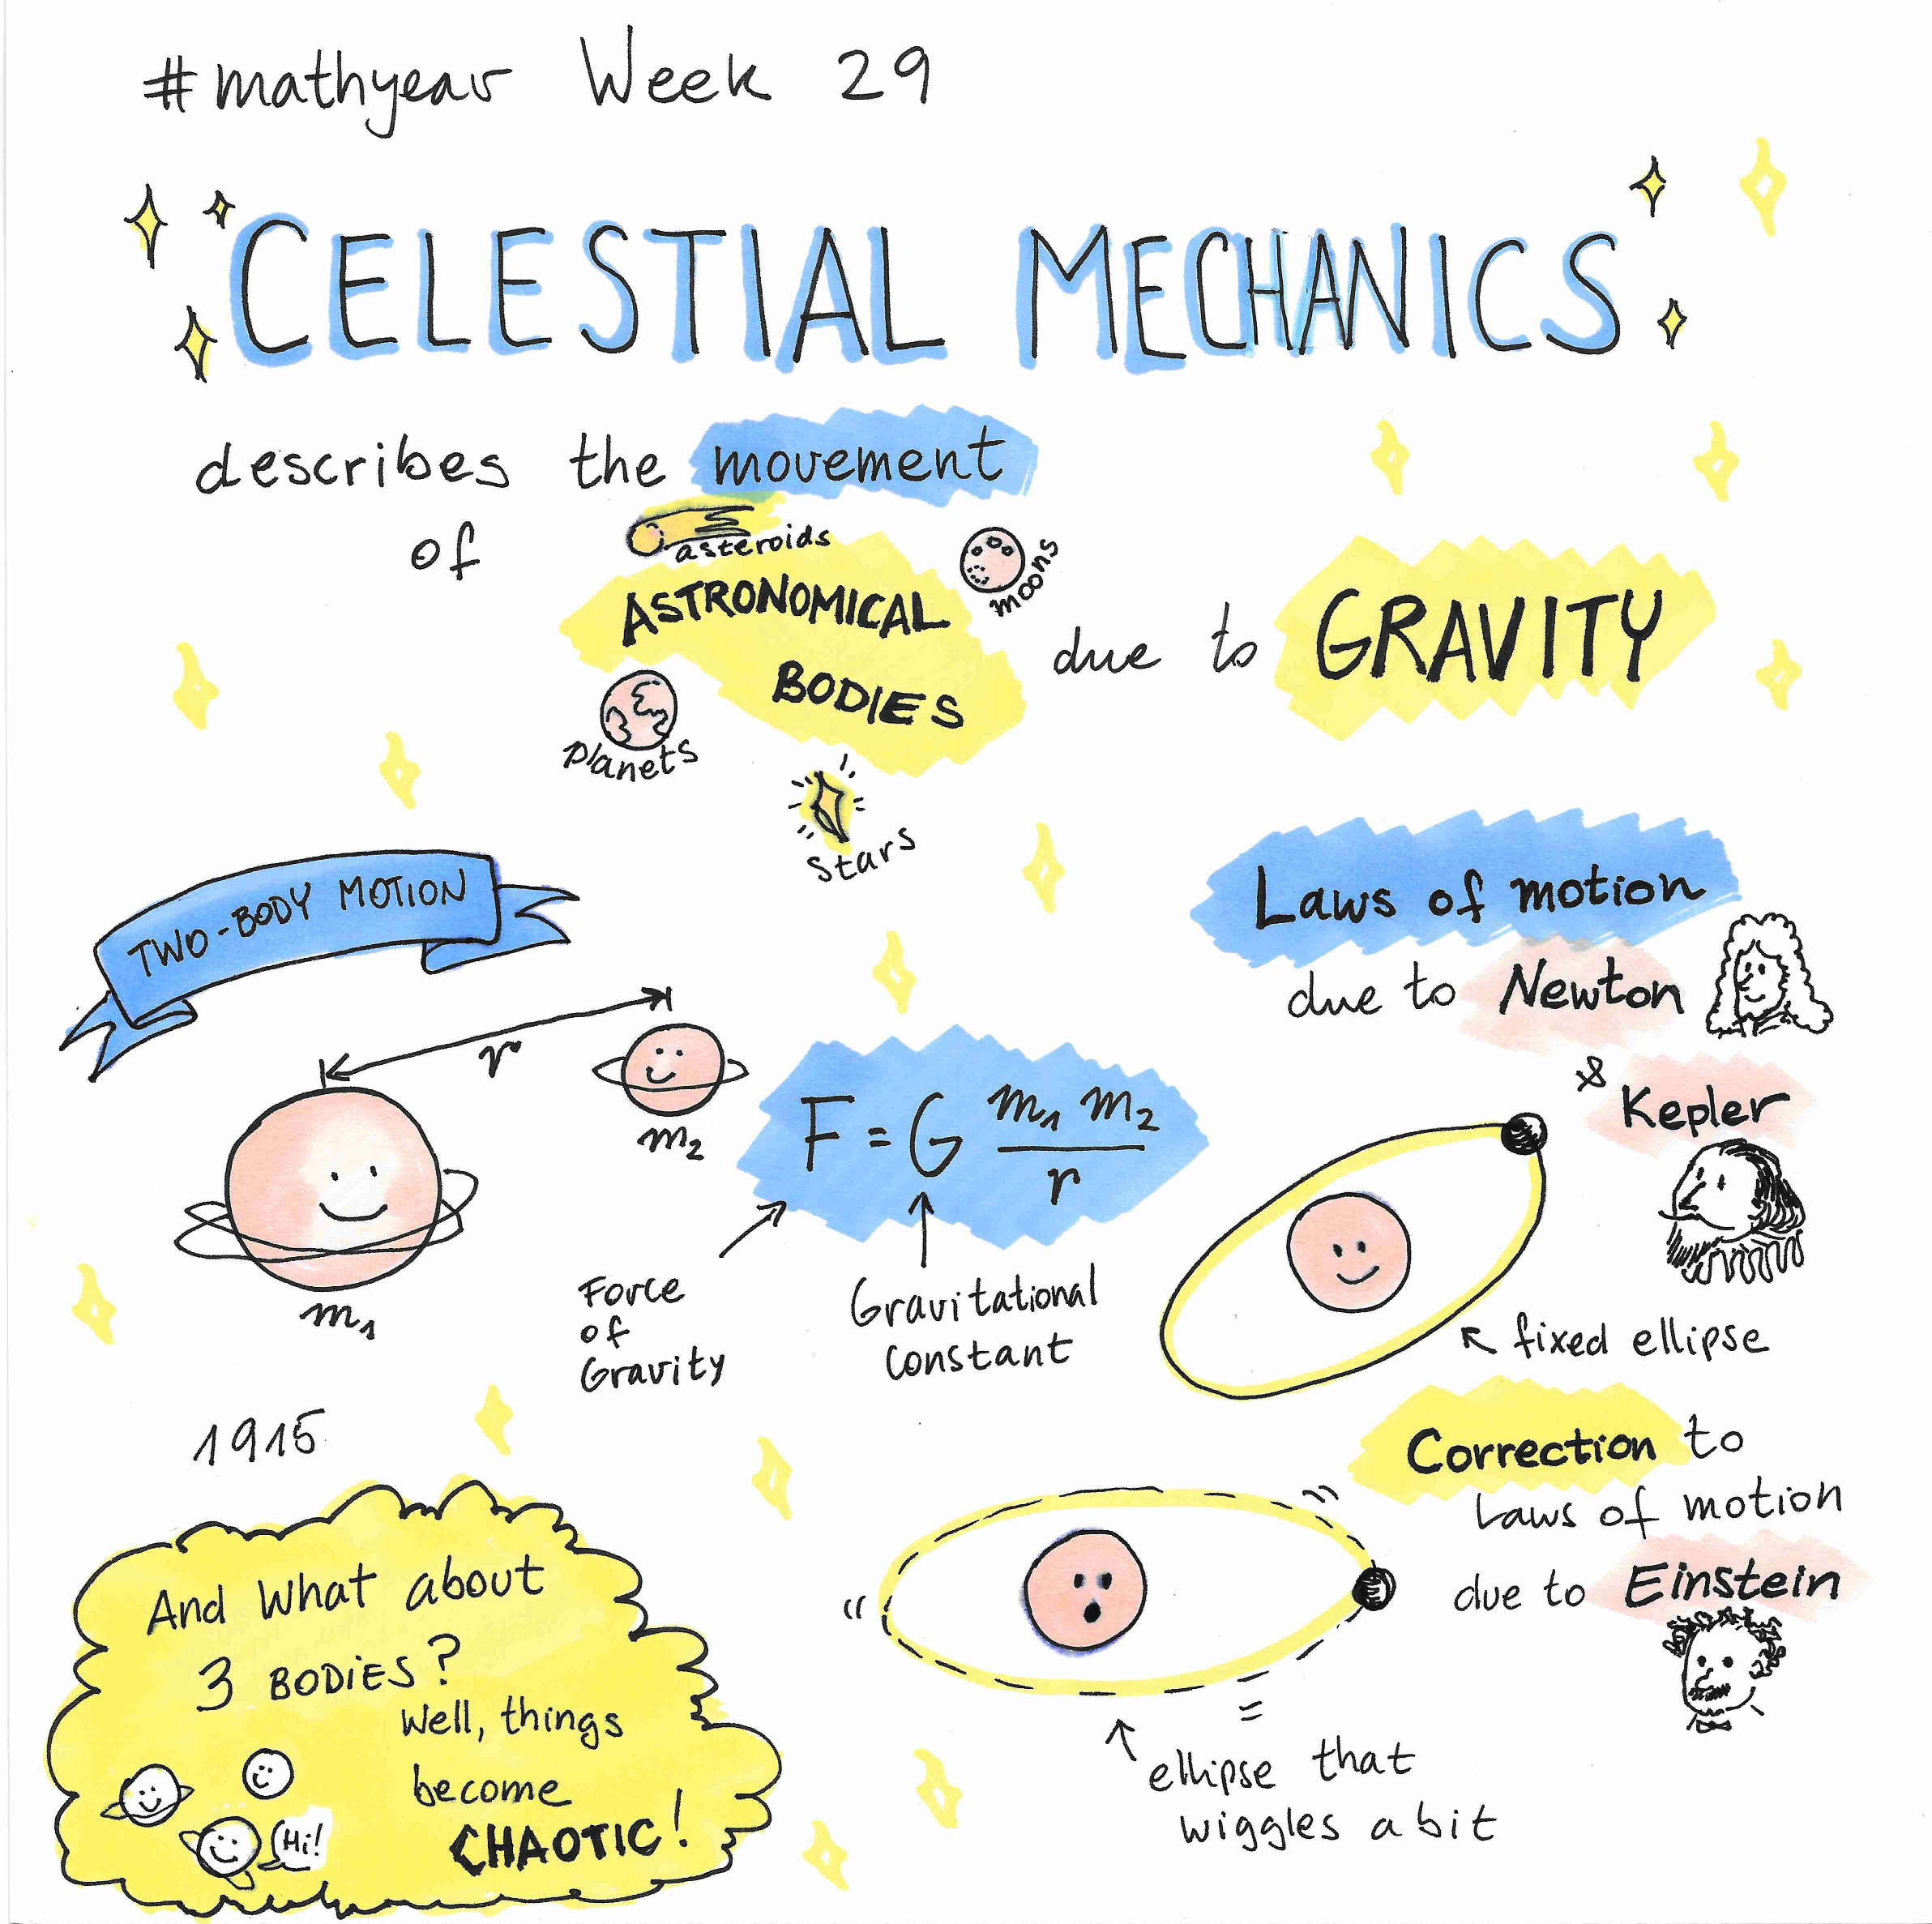 #mathyear Week 29
CELESTIAL MECHANICS
describes the movement
of
asteroids
moons
ASTRONOMICAL
BODIES
planets
stars
due to GRAVITY
TWO-BODY MOTION
r
m₂
m₁
F = G m₁ m₂
r
Force
of
Gravity
Gravitational
constant
Laws of motion
due to Newton
& Kepler
fixed ellipse
1915
Correction to
Laws of motion
due to Einstein
ellipse that
wiggles a bit
And what about
3 BODiES?
Well, things
become
CHAOTIC!
Hi!